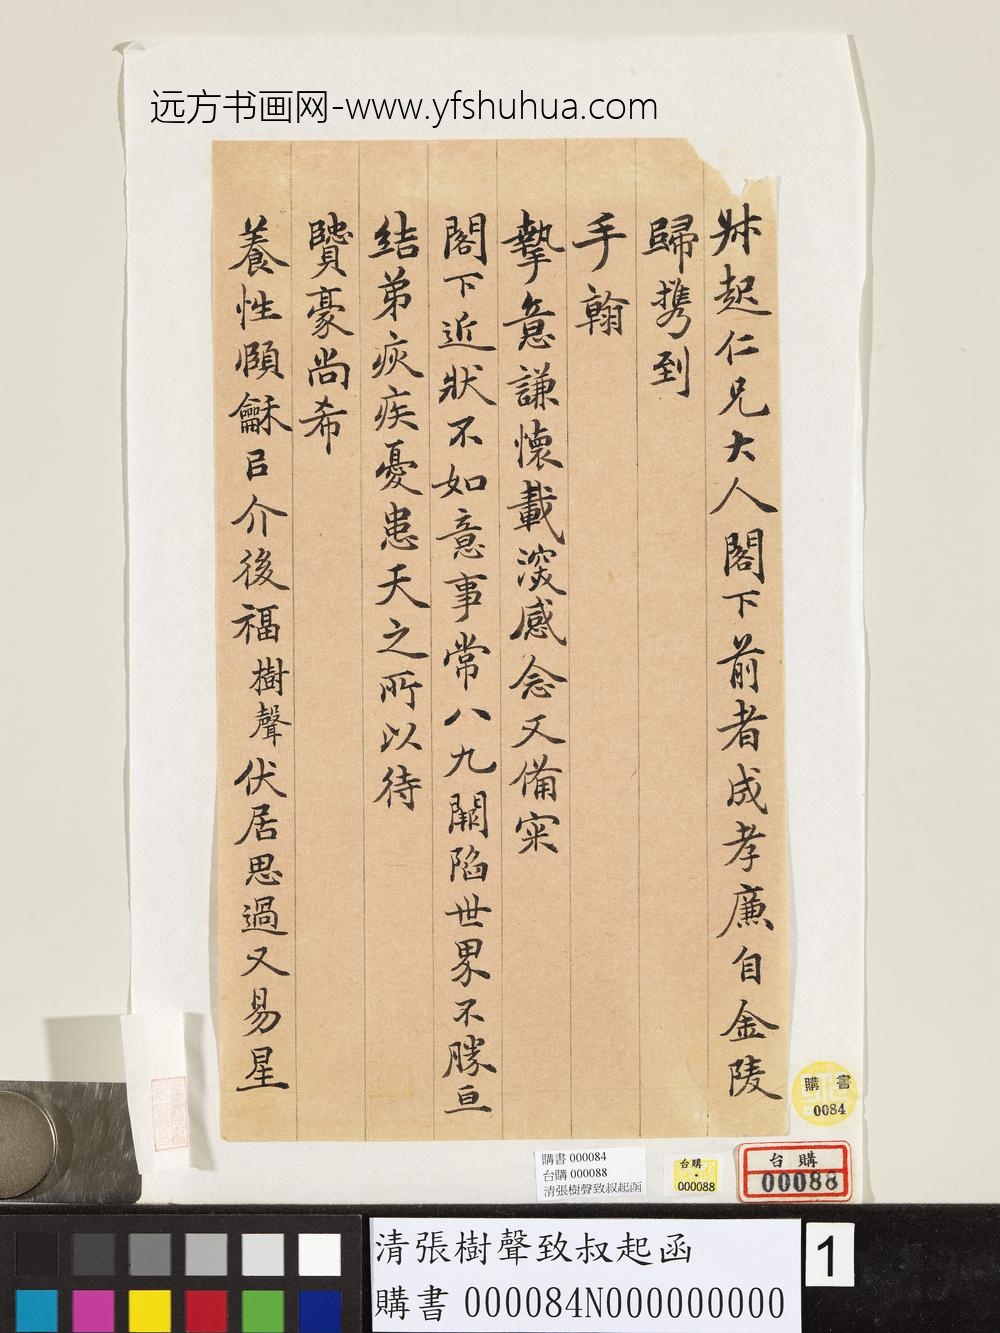 远方书画网-www.yfshuhua.com
尗起仁兄大人閣下前者成孝廉自金陵
歸携到
手翰
摯意謙懷載深感念又備宷
閣下近狀不如意事常八九闕陷世界不勝亘
結弟疢疾憂患天之所以待
賢豪尚希
養性頤龢㠯介後福樹聲伏居思過又易星
購書
0084
購書 000084
台購 000088
清張樹聲致叔起函
台購
000088
台購
00088
清張樹聲致叔起函
購書 000084N000000000
1